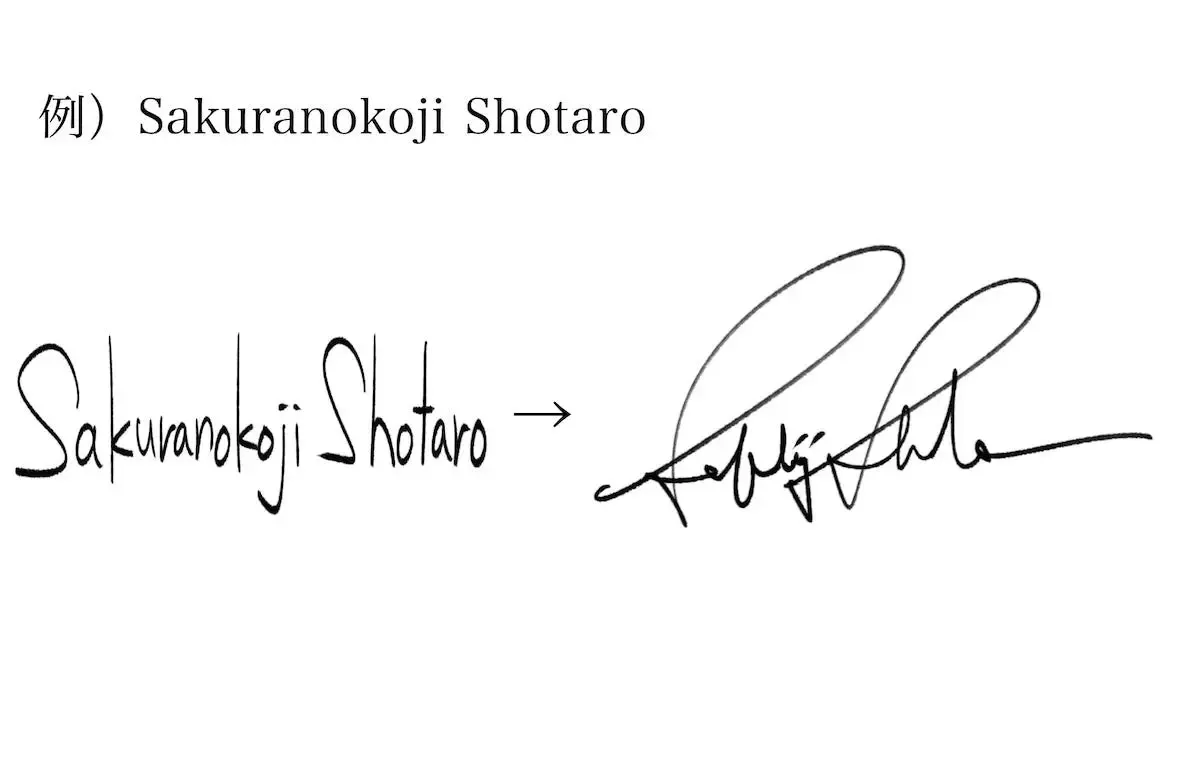 例）Sakuranokoji Shotaro
Sakuranokoji Shotaro →